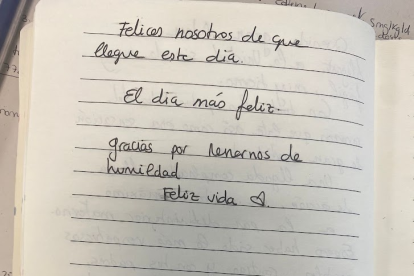 Felices nosotros de que
llegue este día.
El día más feliz.
gracias por llenarnos de
humildad
Feliz vida